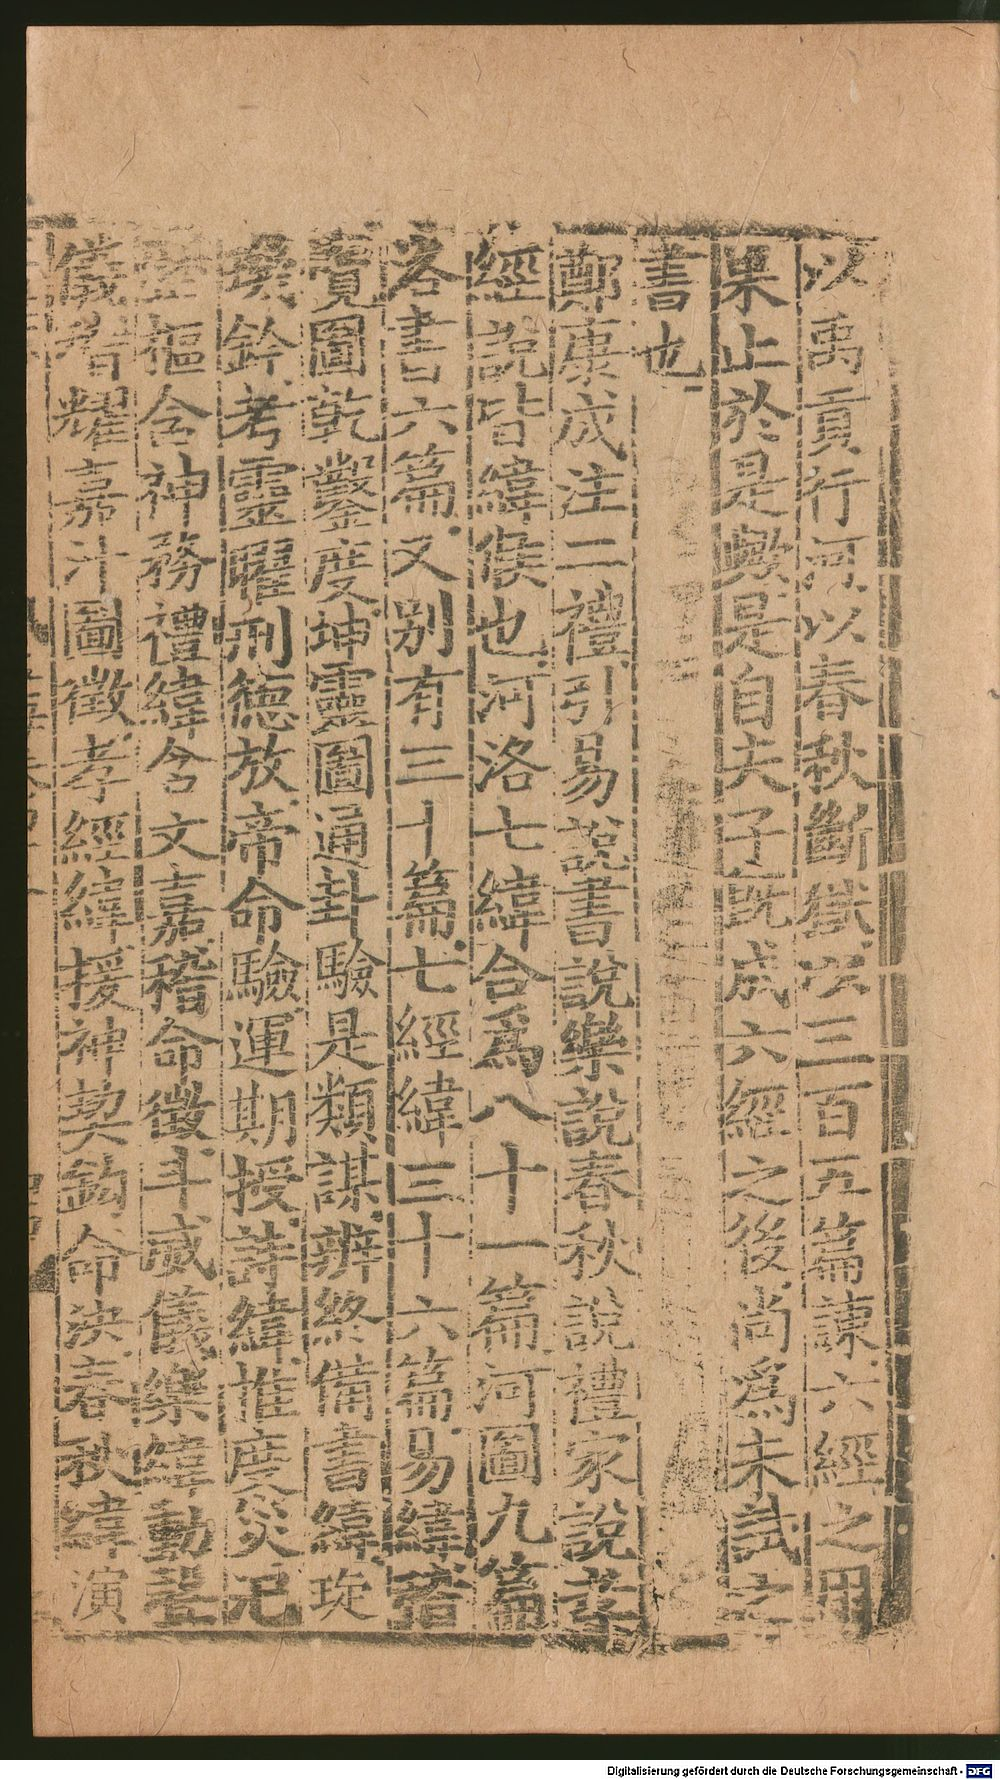 以禹貢行河以春秋斷獄以三百五篇諫六經之用
果止於是歟是自夫子既成六經之後尚爲未試之
書也
鄭康成注二禮引易說書說樂說春秋說禮家說孝
經說皆緯候也河洛七緯合爲八十一篇河圖九篇
洛書六篇又别有三十篇七經緯三十六篇易緯稽
覽圖乾鑿度坤靈圖通卦驗是類謀辨終備書緯琁
璣鈐考靈曜刑德放帝命驗運期授詩緯推度災汜
歷樞含神務禮緯含文嘉稽命徵斗威儀樂緯動聲
儀稽耀嘉汁圖徵孝經緯援神契鉤命決春秋緯演
Digitalisierung gefördert durch die Deutsche Forschungsgemeinschaft - DFG